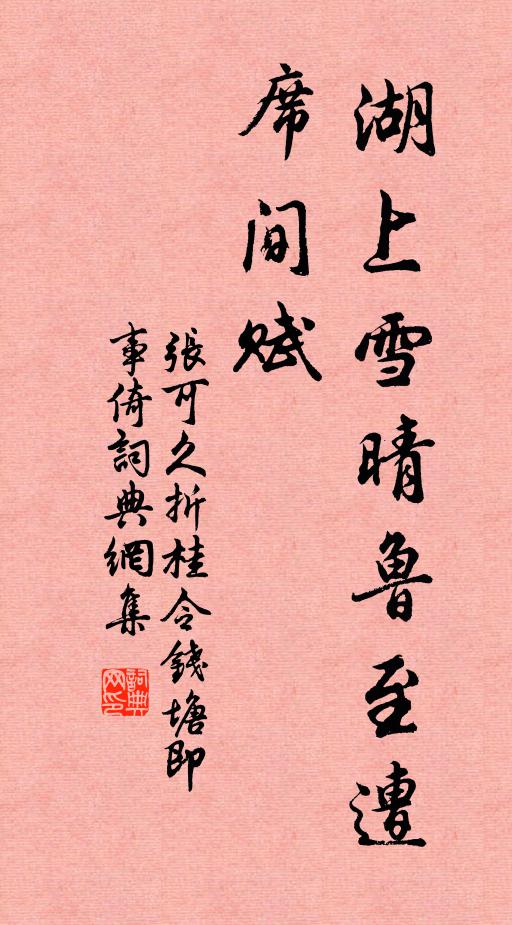 湖上雪晴魯至遭
席间赋
張可久折桂令錢塘即
事倚詞典網集
詞典
网印